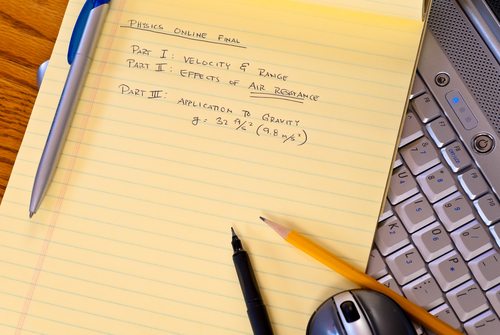 PHYSICS ONLINE FINAL
PART I: VELOCITY & RANGE
PART II: EFFECTS OF AIR RESISTANCE
PART III: APPLICATION TO GRAVITY
g: 32 ft/s² (9.8 m/s²)